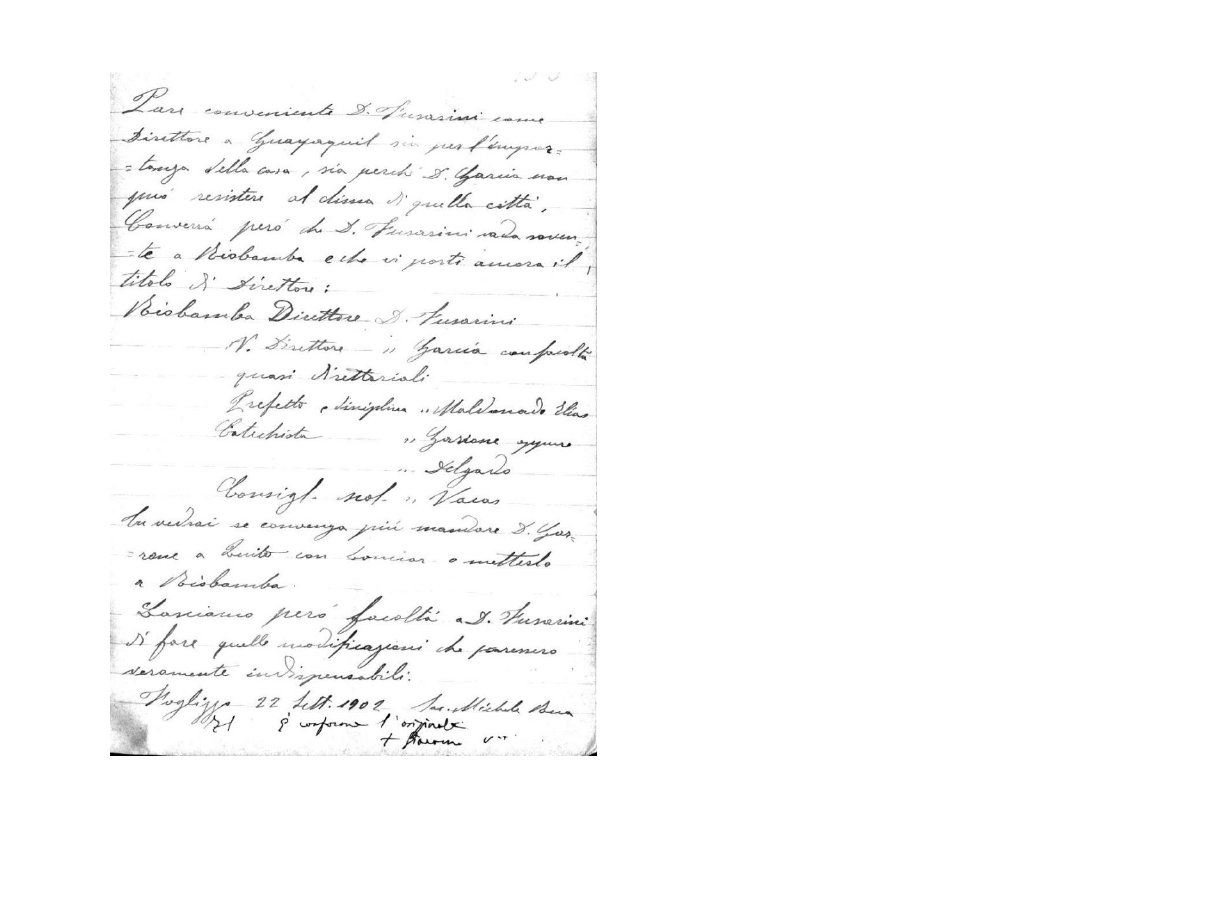 Pare conveniente D. Fusarini come
Direttore a Guayaquil sia per l'impor=
=tanza della casa, sia perchè D. Garcia non
puó resistere al clima di quella cittá,
Converrá peró che D. Fusarini vada soven=
=te a Riobamba e che vi porti ancora il
titolo di Direttore:
Riobamba Direttore D. Fusarini
V. Direttore " Garcia con facoltá
quasi direttoriali
Prefetto e disciplina " Maldonado Elias
Catechista " Garrone oppure
" Delgado
Consigl. scol. " Vacas
Tu vedrai se convenga piú mandare D. Gar=
=rone a Quito con o metterlo
a Riobamba.
Lasciamo peró facoltá a D. Fusarini
di fare quelle modificazioni che paressero
veramente indispensabili.
Foglizzo 22 Sett. 1902 Sac. Michele Rua
È conforme l'originale
+